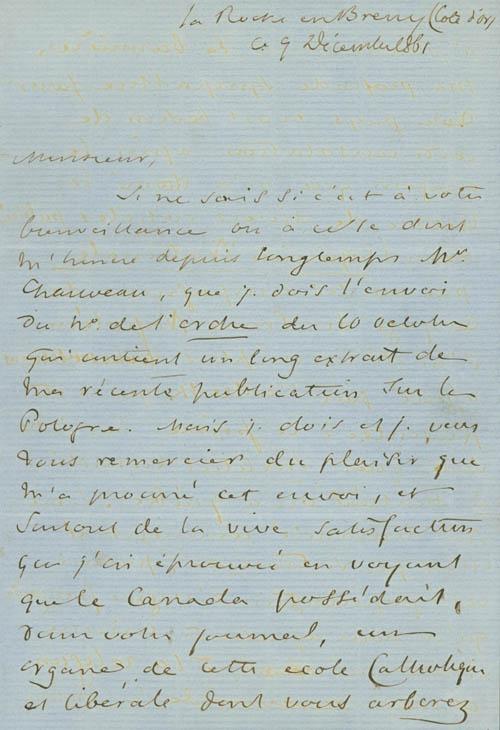 La Roche en Breny (Côte d'or)
Ce 9 Décembre 1861
Monsieur,
Je ne sais si c'est à votre
bienveillance ou à celle dont
m'honore depuis longtemps Mr.
Chauveau, que je dois l'envoi
du no. de l'ordre du 10 octobre
qui contient un long extrait de
ma récente publication sur la
Pologne. Mais je dois et je veux
vous remercier du plaisir que
m'a procuré cet envoi, et
surtout de la vive satisfaction
que j'ai éprouvée en voyant
que le Canada possédait,
dans votre journal, un
organe de cette ecole Catholique
et libérale dont vous arborez